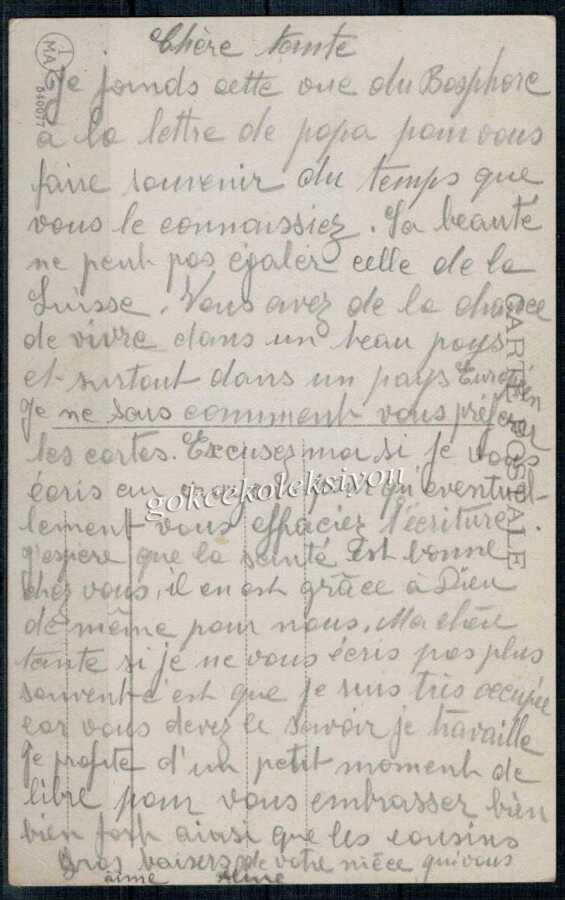 Chère tante
Je joinds cette vue du Bosphore
à la lettre de papa pour vous
faire souvenir du temps que
vous le connaissiez. Sa beauté
ne peut pas égaler celle de la
Suisse. Vous avez de la chance
de vivre dans un beau pays
et surtout dans un pays Européen
Je ne sais comment vous préférez
les cartes. Excusez moi si je vous
écris au pour qu'éventuel-
lement vous effaciez l'écriture
J'espère que la santé est bonne
chez vous, il en est grâce à Dieu
de même pour nous. Ma chère
tante si je ne vous écris pas plus
souvent c'est que je suis très occupée
car vous devez le savoir je travaille
Je profite d'un petit moment de
libre pour vous embrasser bien
bien fort ainsi que les cousins
Gros baisers de votre nièce qui vous
aime Aline
CARTE POSTALE
MA
040077
gokcekoleksiyon